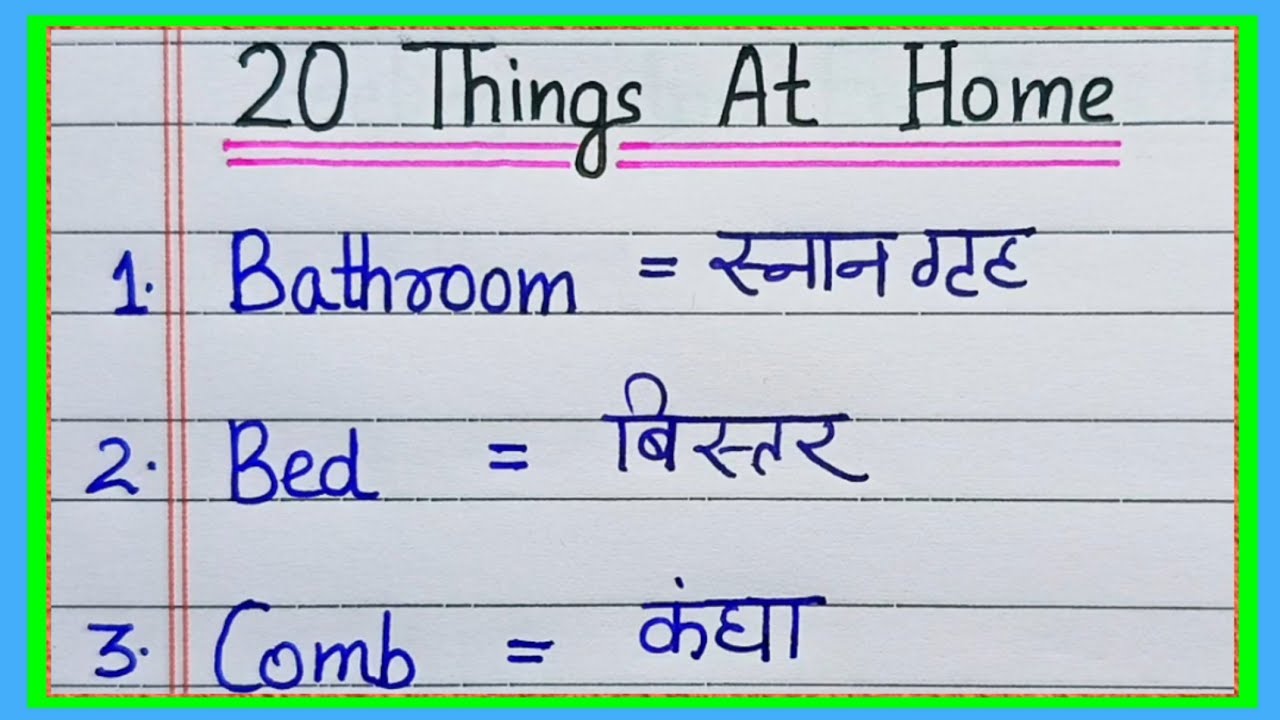 20 Things At Home
1. Bathroom = स्नान गृह
2. Bed = बिस्तर
3. Comb = कंघा